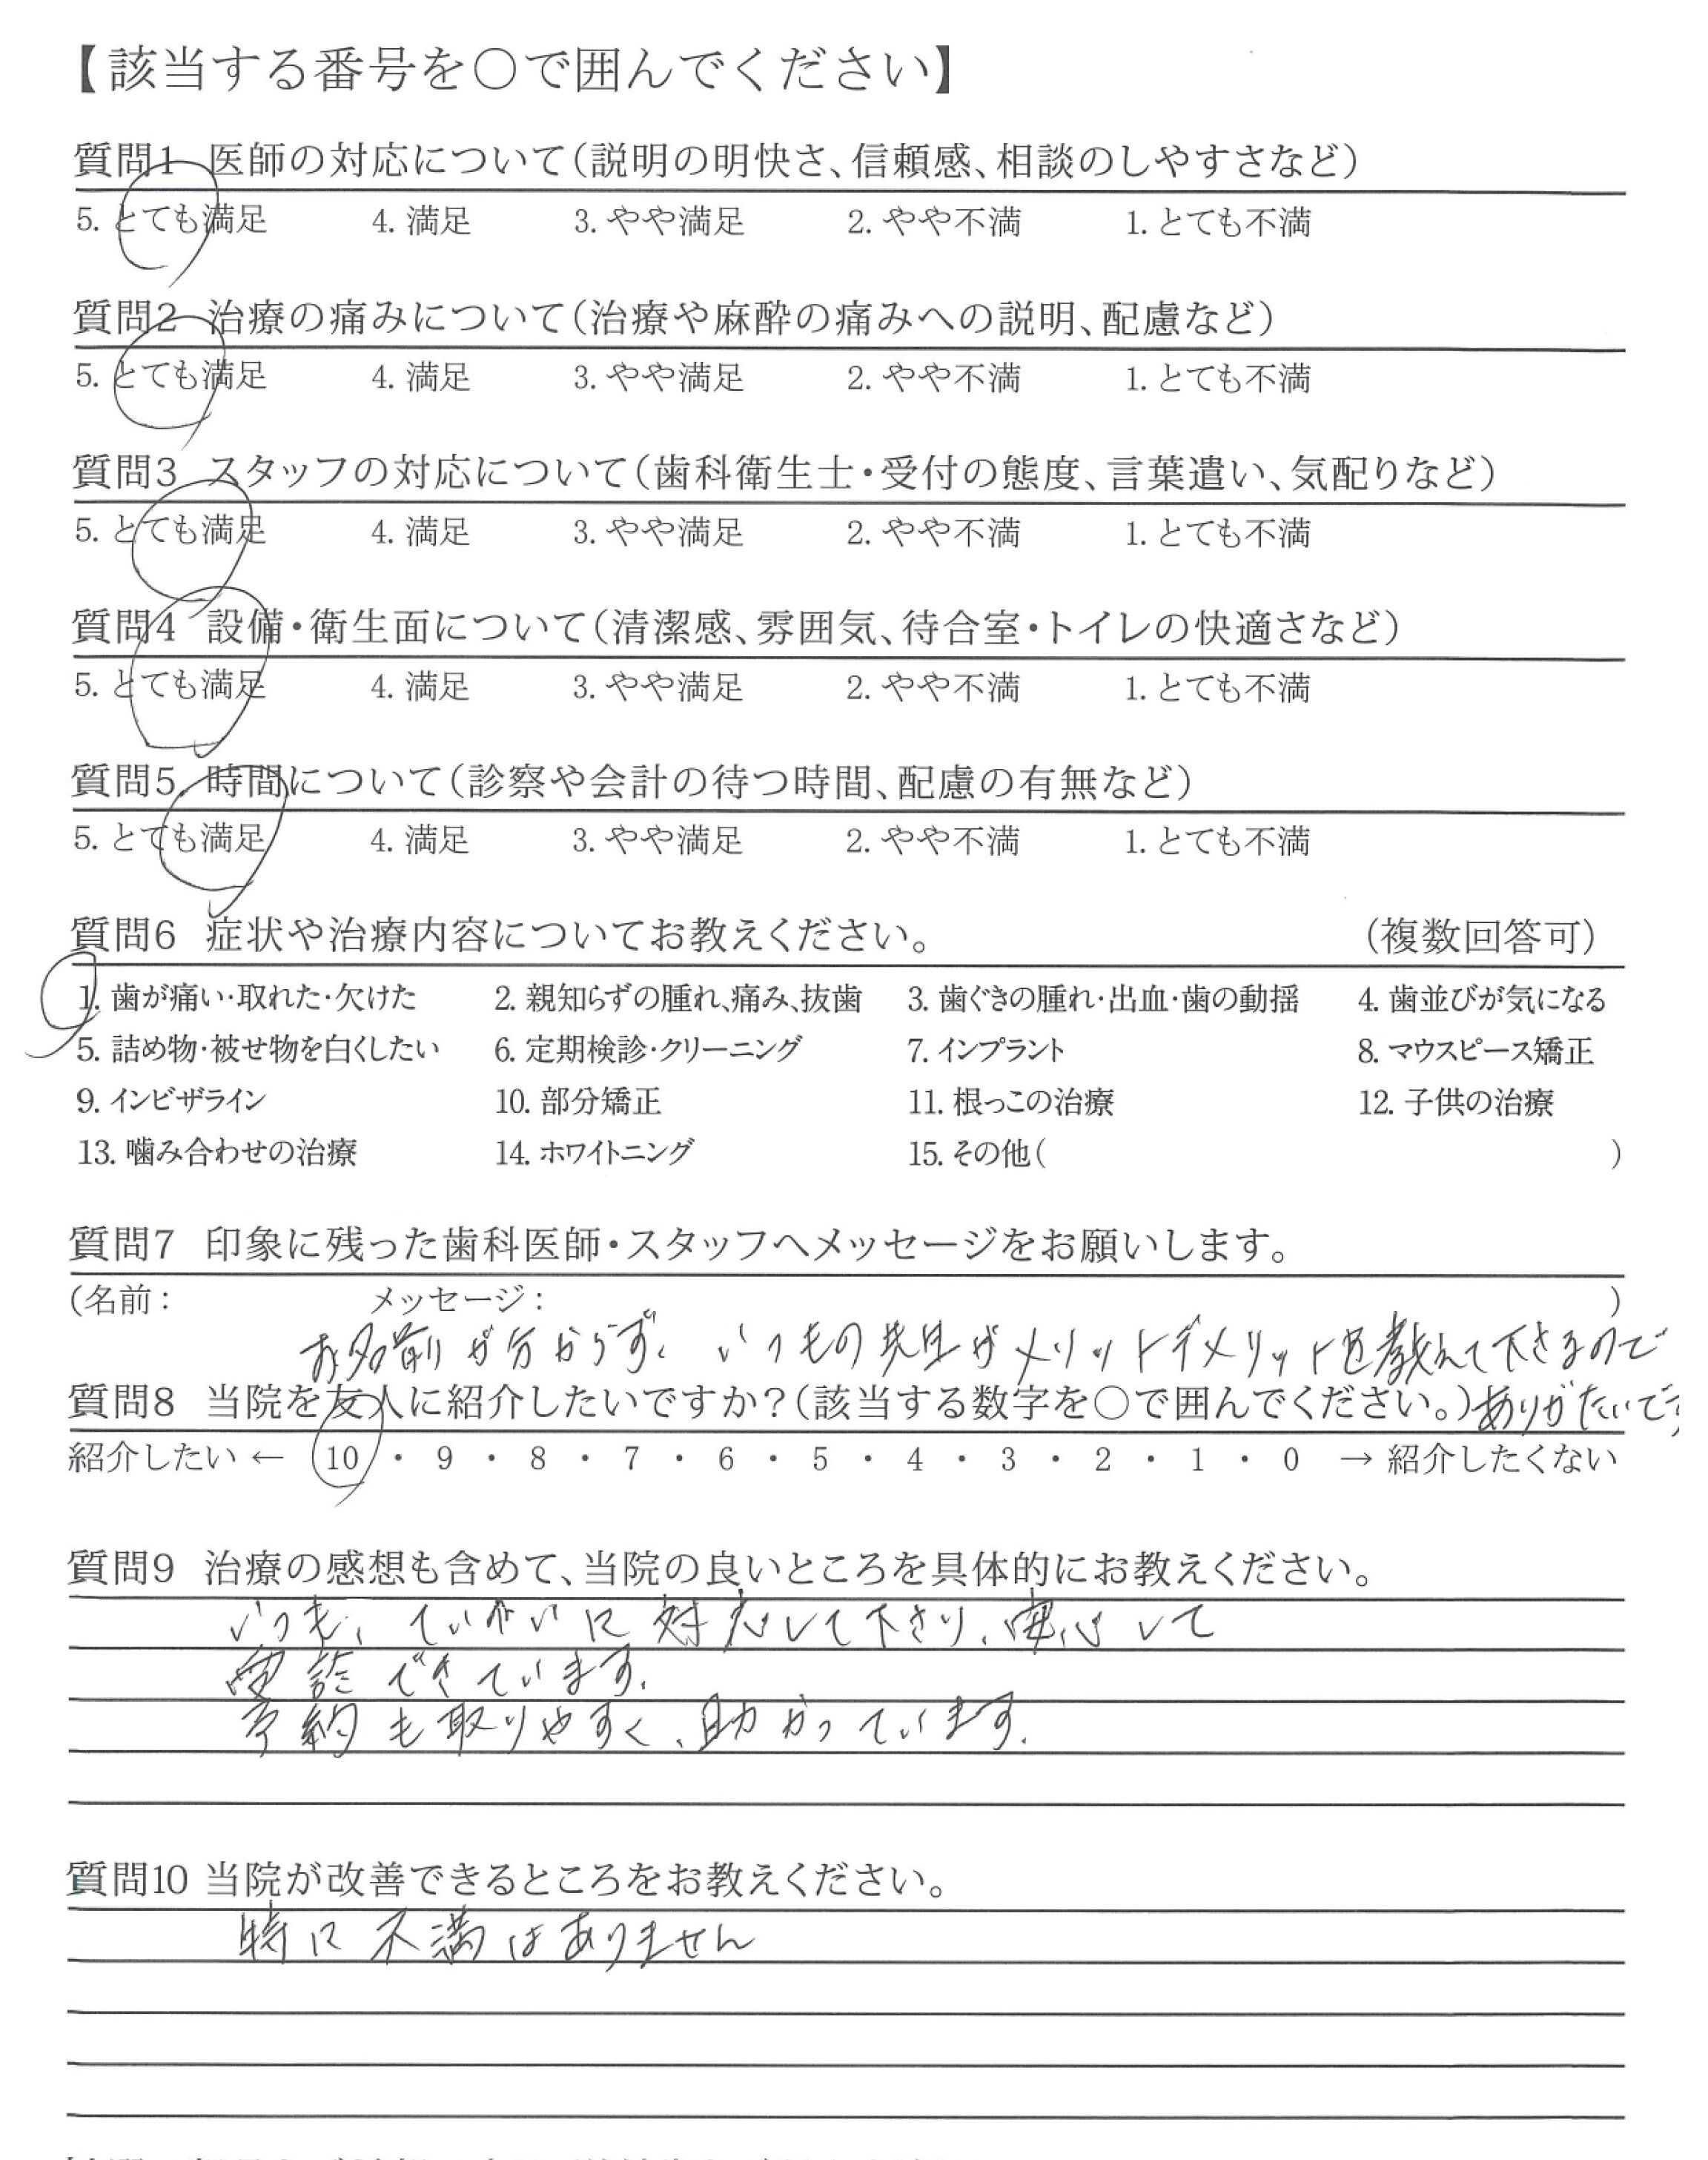 【該当する番号を○で囲んでください】
質問1 医師の対応について(説明の明快さ、信頼感、相談のしやすさなど)
5. とても満足 4. 満足 3. やや満足 2. やや不満 1. とても不満
質問2 治療の痛みについて(治療や麻酔の痛みへの説明、配慮など)
5. とても満足 4. 満足 3. やや満足 2. やや不満 1. とても不満
質問3 スタッフの対応について(歯科衛生士・受付の態度、言葉遣い、気配りなど)
5. とても満足 4. 満足 3. やや満足 2. やや不満 1. とても不満
質問4 設備・衛生面について(清潔感、雰囲気、待合室・トイレの快適さなど)
5. とても満足 4. 満足 3. やや満足 2. やや不満 1. とても不満
質問5 時間について(診察や会計の待つ時間、配慮の有無など)
5. とても満足 4. 満足 3. やや満足 2. やや不満 1. とても不満
質問6 症状や治療内容についてお教えください。 (複数回答可)
1. 歯が痛い・取れた・欠けた 2. 親知らずの腫れ、痛み、抜歯 3. 歯ぐきの腫れ・出血・歯の動揺 4. 歯並びが気になる
5. 詰め物・被せ物を白くしたい 6. 定期検診・クリーニング 7. インプラント 8. マウスピース矯正
9. インビザライン 10. 部分矯正 11. 根っこの治療 12. 子供の治療
13. 噛み合わせの治療 14. ホワイトニング 15. その他( )
質問7 印象に残った歯科医師・スタッフへメッセージをお願いします。
(名前: メッセージ: )
お名前が分からず、いつもの先生がメリットデメリットを教えて下さるので
ありがたいです
質問8 当院を友人に紹介したいですか?(該当する数字を○で囲んでください。)
紹介したい ← 10 ・ 9 ・ 8 ・ 7 ・ 6 ・ 5 ・ 4 ・ 3 ・ 2 ・ 1 ・ 0 → 紹介したくない
質問9 治療の感想も含めて、当院の良いところを具体的にお教えください。
いつも、ていねいに対応して下さり、安心して
受診できています。
予約も取りやすく、助かっています。
質問10 当院が改善できるところをお教えください。
特に不満はありません